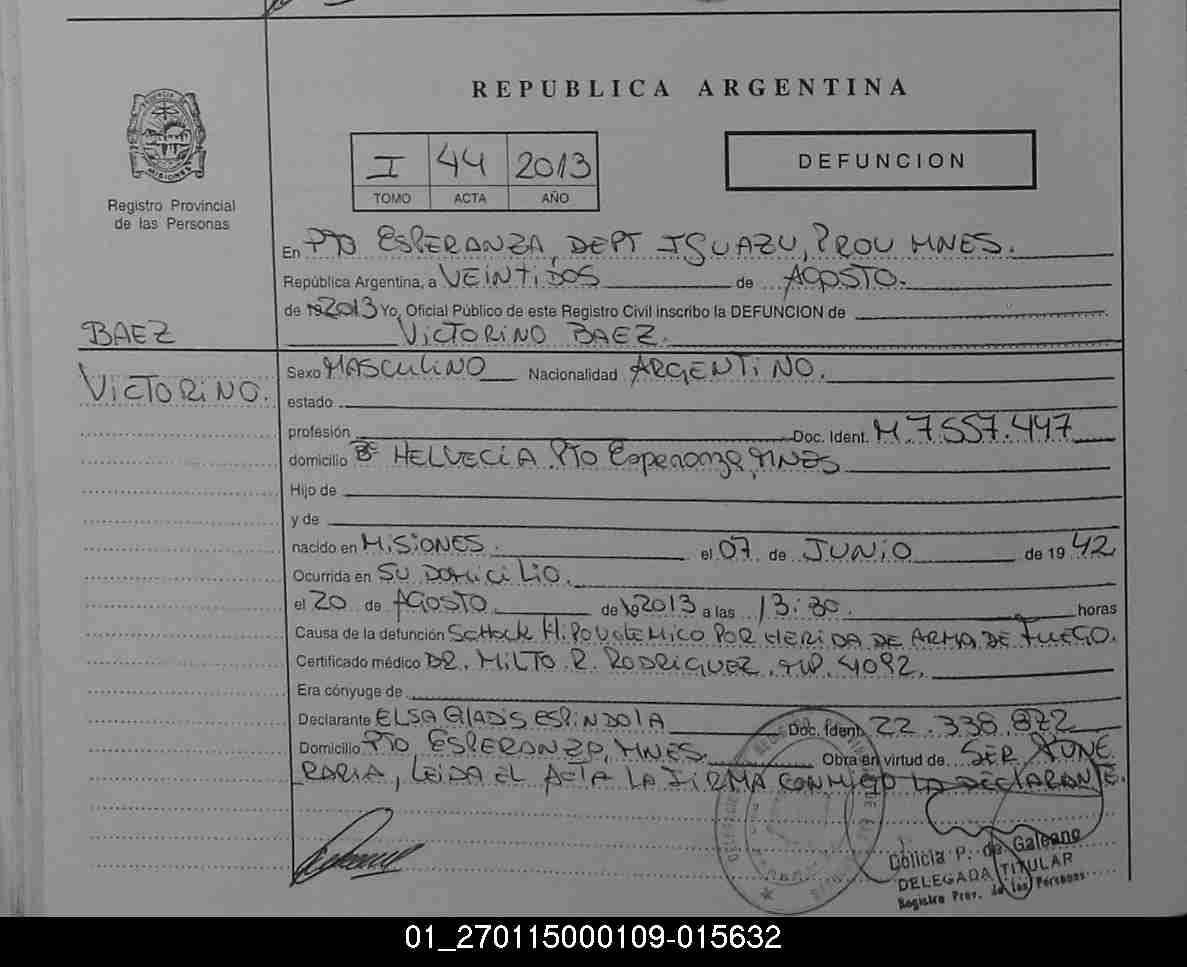 REPUBLICA ARGENTINA
I 44 2013
TOMO ACTA AÑO
DEFUNCION
MISIONES
Registro Provincial
de las Personas
En PTO ESPERANZA, DEPT IGUAZU, PROV MNES.
República Argentina, a VEINTIDOS de AGOSTO.
de 19 2013 Yo, Oficial Público de este Registro Civil inscribo la DEFUNCION de
BAEZ
VICTORINO BAEZ.
VICTORINO.
Sexo MASCULINO Nacionalidad ARGENTINO.
estado
profesión Doc. Ident. M. 7.557.447
domicilio Bº HELVECIA PTO Esperanza, MNES
Hijo de
y de
nacido en MISIONES. el 07 de JUNIO de 19 42
Ocurrida en SU DOMICILIO.
el 20 de AGOSTO de 19 2013 a las 13:30. horas
Causa de la defunción SCHOCK HIPOVOLEMICO POR HERIDA DE ARMA DE FUEGO.
Certificado médico DR. MILTO R. RODRIGUEZ, MP. 4092.
Era cónyuge de
Declarante ELSA GLADIS ESPINDOLA Doc. Ident. 22.338.872
Domicilio PTO ESPERANZA, MNES. Obra en virtud de SER FUNE
RARIA, LEIDA EL ACTA LA FIRMA CONMIGO LA DECLARANTE.
Dolicia P. de Galeano
DELEGADA TITULAR
Registro Prov. de las Personas
01_270115000109-015632